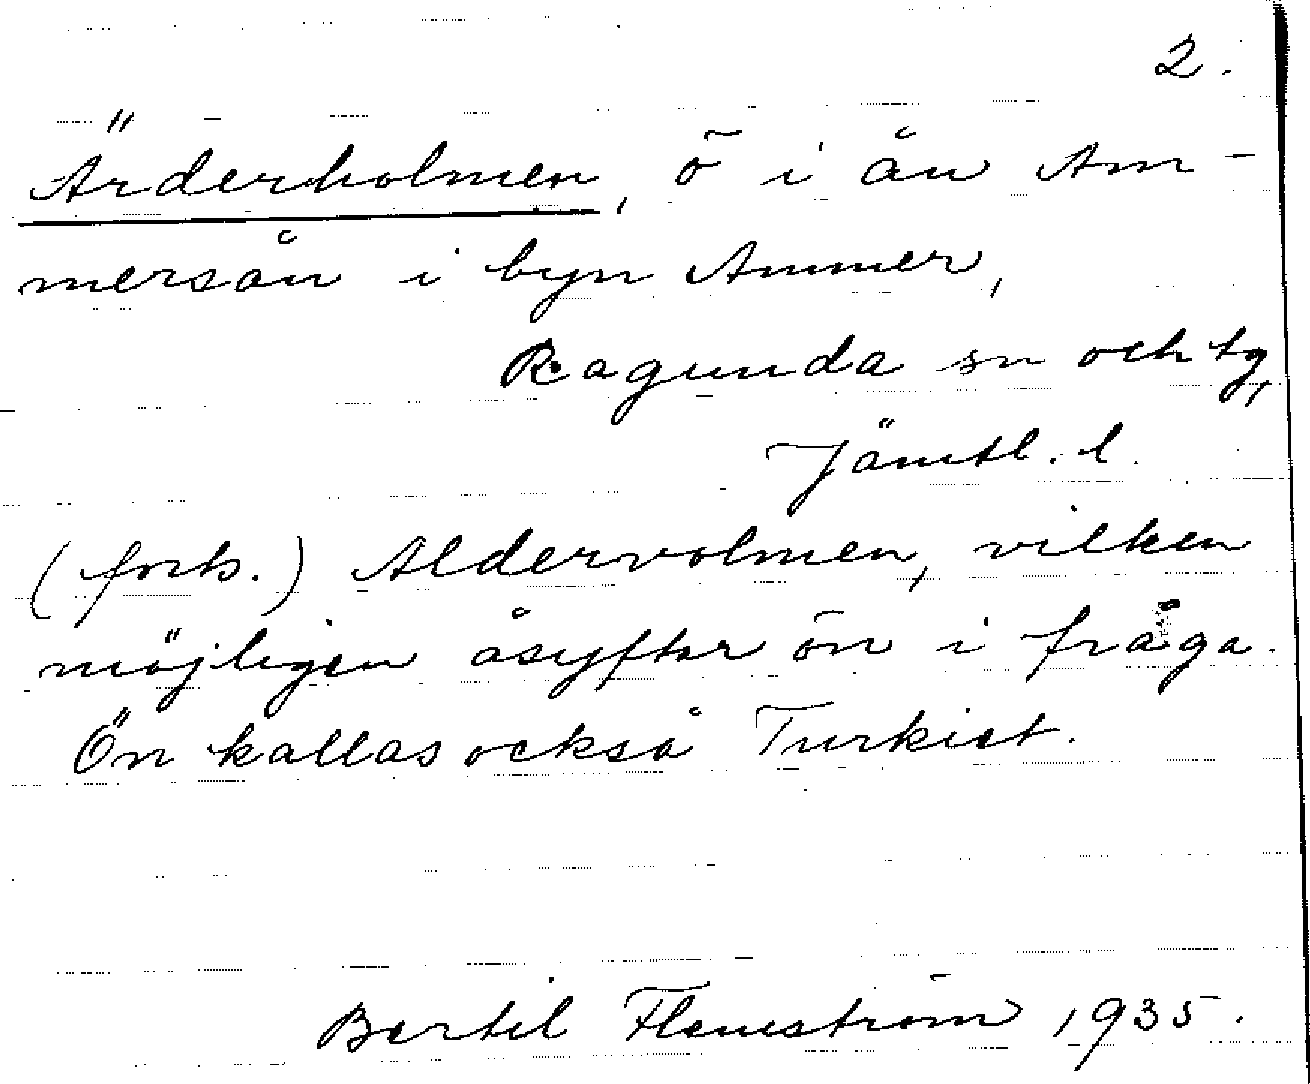 2.
Ärderholmen, ö i ån Am-
mersån i byn Ammer,
Ragunda sn och tg,
Jämtl. l.
(forts.) Aldervolmen, vilken
möjligen åsyftar ön i fråga.
Ön kallas också Turkiet.
Bertil Flemström 1935.